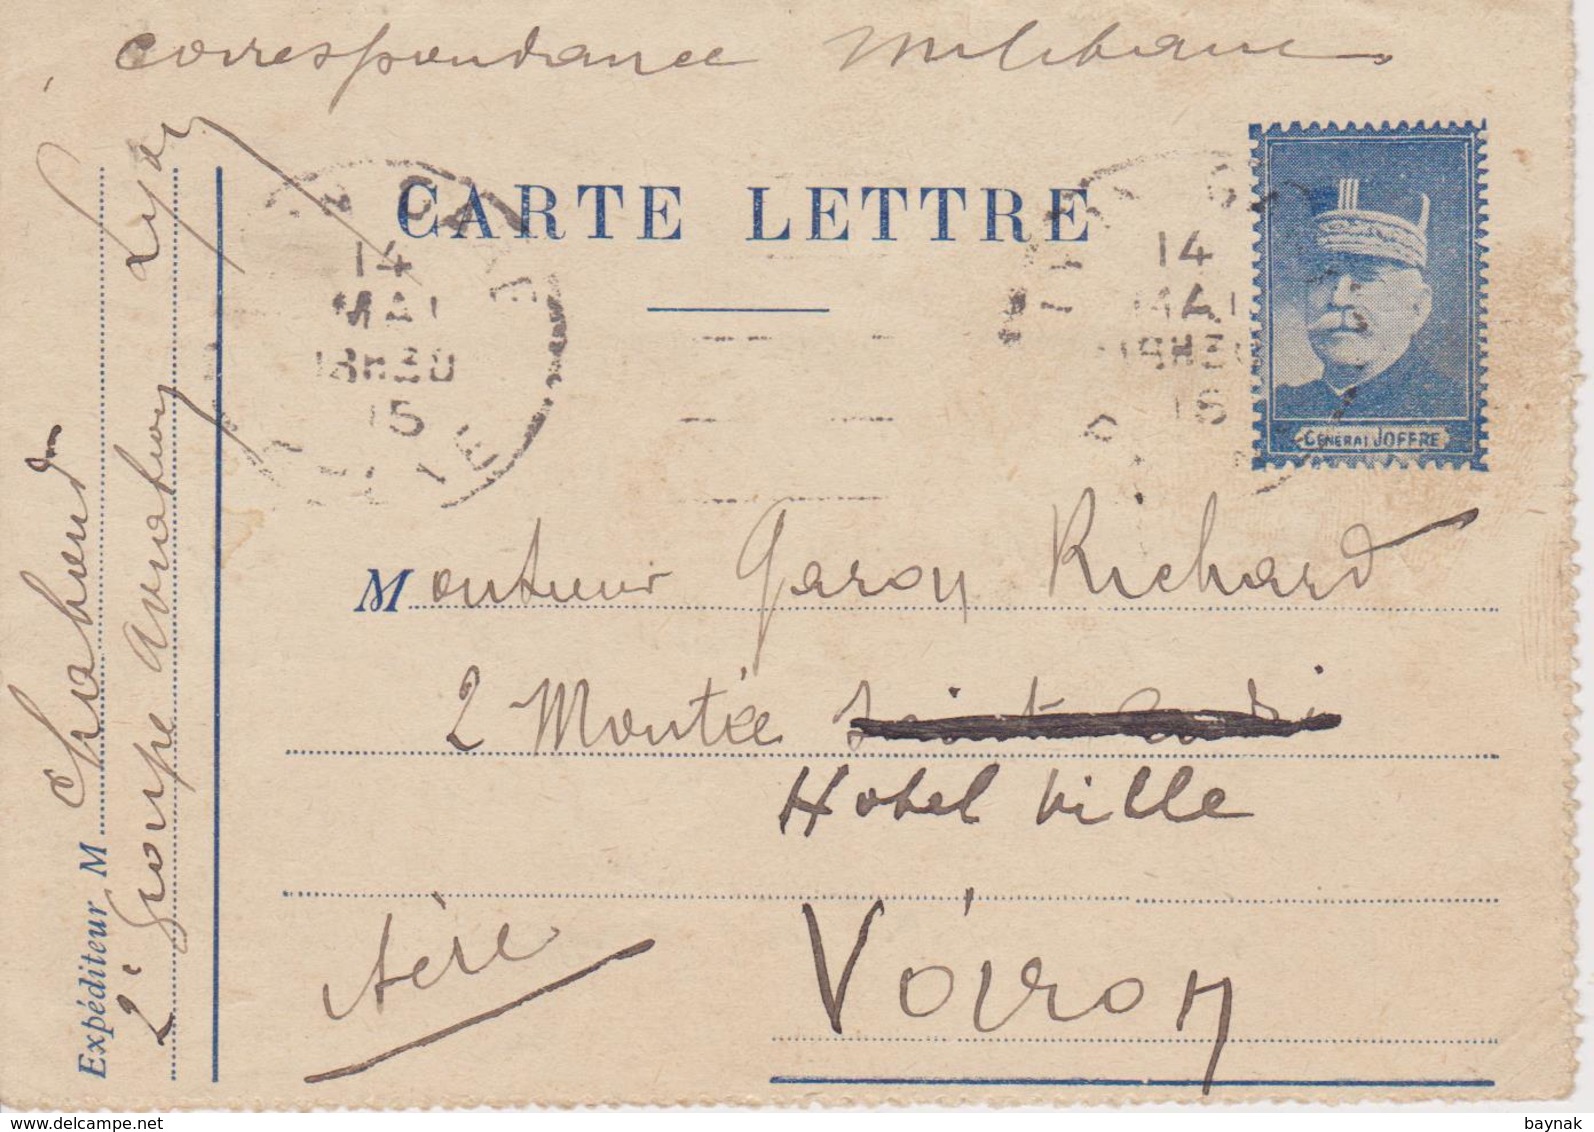 correspondance militaire
CARTE LETTRE
14
MAI
18H30
15
14
MAI
18H30
15
GÉNÉRAL JOFFRE
Monsieur Garon Richard
2 Montée
Hotel Ville
Voiron
Isère
Expéditeur M Chabaud
2e Groupe aviation Lyon
www.delcampe.net
baynak